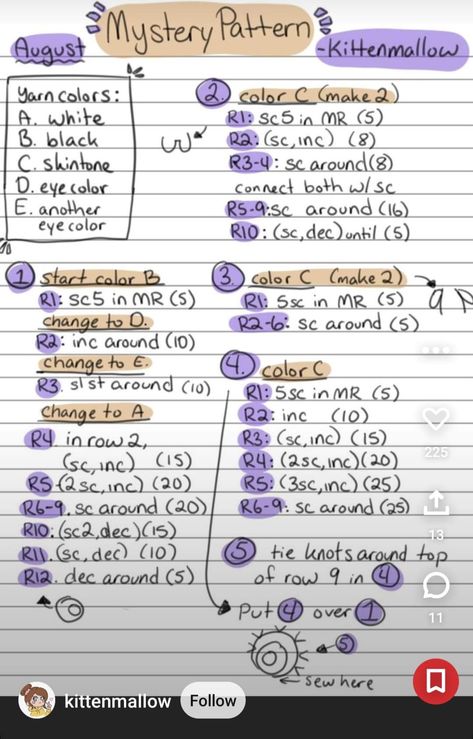 Mystery Pattern
August
-Kittenmallow
Yarn colors:
A. white
B. black
C. skintone
D. eye color
E. another
eye color
1 start color B
R1: sc5 in MR (5)
change to D.
R2: inc around (10)
change to E.
R3. slst around (10)
change to A
R4. in row 2,
(sc, inc) (15)
R5-(2sc, inc) (20)
R6-9. sc around (20)
R10: (sc2, dec) (15)
R11. (sc, dec) (10)
R12. dec around (5)
2. color C (make 2)
R1: sc5 in MR (5)
R2: (sc, inc) (8)
R3-4: sc around (8)
connect both w/sc
R5-9: sc around (16)
R10: (sc, dec) until (5)
3. color C (make 2)
R1: 5sc in MR (5)
R2-6: sc around (5)
4. color C
R1: 5sc in MR (5)
R2: inc (10)
R3: (sc, inc) (15)
R4: (2sc, inc) (20)
R5: (3sc, inc) (25)
R6-9: sc around (25)
5 tie knots around top
of row 9 in 4
Put 4 over 1
5
sew here
225
13
11
kittenmallow
Follow